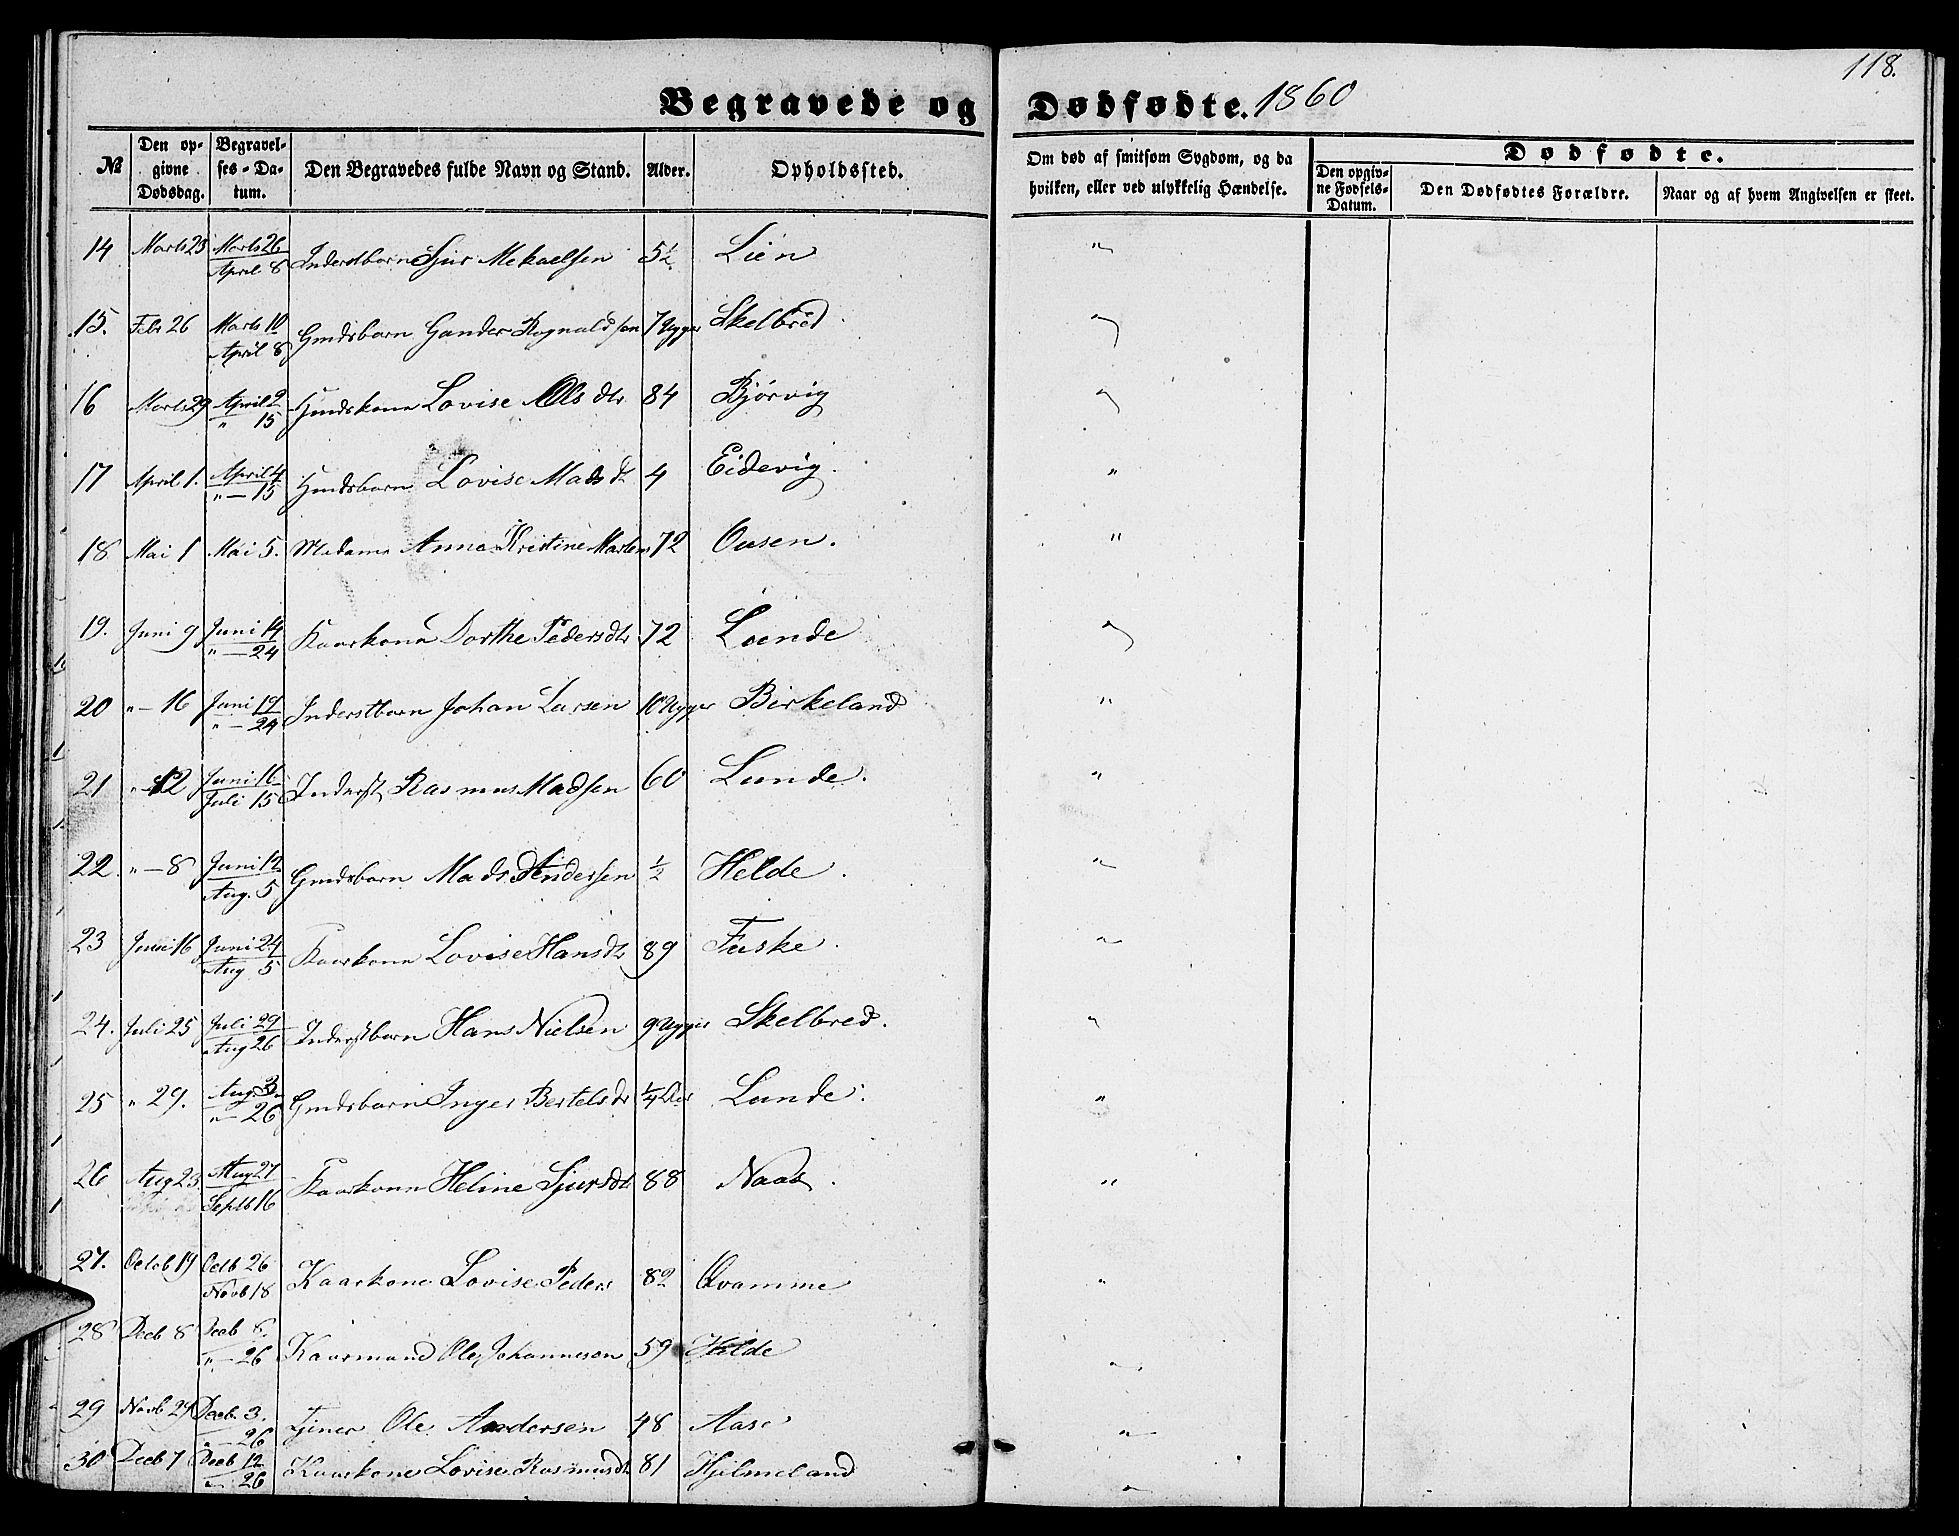 118.
Begravede og Dødfødte. 1860
№ Den opgivne Dødsdag. Begravelses-Datum. Den Begravedes fulde Navn og Stand. Alder. Opholdssted. Om død af smitsom Sygdom, og da hvilken, eller ved ulykkelig Hændelse. Dødfødte. Den opgivne Fødsels-Datum. Den Dødfødtes Forældre. Naar og af hvem Angivelsen er skeet.
14 Marts 23 Marts 26 April 8 Inderstbarn Sjur Mekaelsen 5½ Lien "
15. Febr 26 Marts 10 April 8 Gmdsbarn Gander Rognaldsen 7 Uger Skelbred "
16 Marts 29 April 2 " 15 Gmdskone Lovise Olsdtr 84 Bjørvig "
17 April 1. April 4 " — 15 Gmdsbarn Lovise Madsdt 4 Eidevig. "
18 Mai 1 Mai 5. Madame Anna Kristine 72 Ousen. "
19. Juni 9 Juni 14 " — 24 Kaarkona Dorthe Pedersdtr 72 Lunde "
20 " — 16 Juni 19 " — 24 Inderstbarn Johan Larsen 10 Uger Birkeland "
21 " 12 Juni 16 Juli 15 Inderst Rasmus Madsen 60 Lunde. "
22. " — 8 Juni 12 Aug. 5 Gmdsbarn Mads Andersen ½ Helde. "
23 Juni 16 Juni 24 Aug 5 Kaarkone Lovise Hansdtr 89 Fuske. "
24. Juli 25 Juli 29 Aug 26 Inderstbarn Hans Nielsen 9 Uger Skelbred. "
25 " 29. Aug. 3. " — 26 Gmdsbarn Inger Bertelsdr ¼ Lunde. "
26 Aug 23 Aug 27 Septb 16 Kaarkone Heline Sjursdtr 88 Naas. "
27. Octob 19 Octb 26 Novb 18 Kaarkone Lovise Peders 82 Qvamme "
28 Decb 8 Decb " — 26 Kaarmand Ole Johannesen 59 Helde "
29 Novb 29 Decb. 3. " — 26 Tjener Ole Andersen 48 Aase "
30 Decb 7 Decb 12 " 26 Kaarkone Lovise Rasmusdt 81 Hjelmeland "